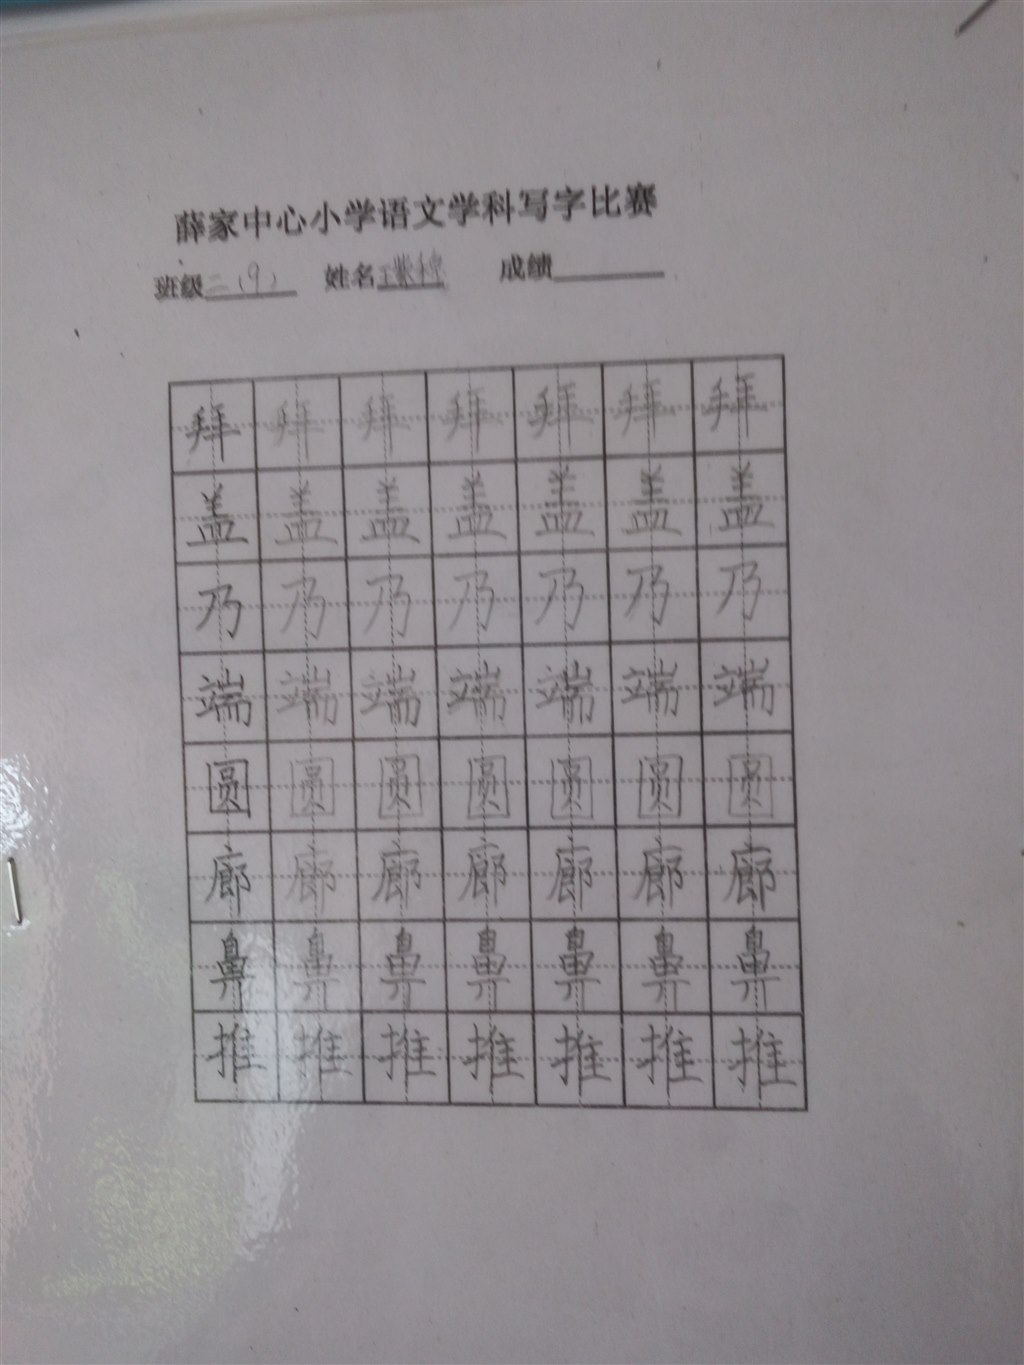 薛家中心小学语文学科写字比赛
班级二（9） 姓名 成绩
拜拜拜拜拜拜拜
盖盖盖盖盖盖盖
乃乃乃乃乃乃乃
端端端端端端端
圆圆圆圆圆圆圆
廊廊廊廊廊廊廊
鼻鼻鼻鼻鼻鼻鼻
推推推推推推推